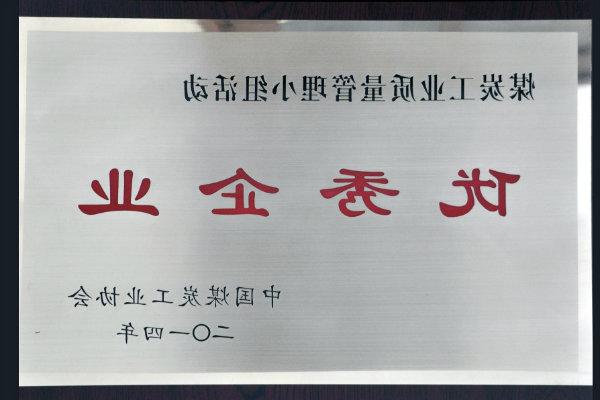 煤炭工业质量管理小组活动
优秀企业
中国煤炭工业协会
二〇一四年